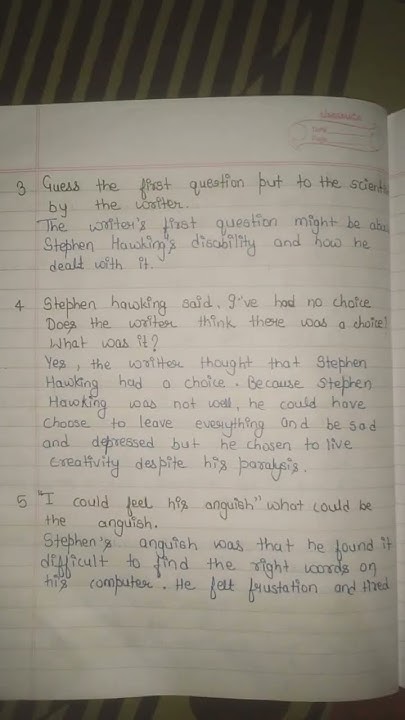 classmate
Date
Page
3 Guess the first question put to the scienti
by the writer.
The writer's first question might be abou
Stephen Hawking's disability and how he
dealt with it.
4 Stephen hawking said, I've had no choice
Does the writer think there was a choice?
What was it?
Yes, the writter thought that Stephen
Hawking had a choice. Because Stephen
Hawking was not well, he could have
choose to leave everything and be sad
and depressed but he chosen to live
creativity despite his paralysis.
5 "I could feel his anguish" what could be
the anguish.
Stephen's anguish was that he found it
difficult to find the right words on
his computer. He felt frustation and tired